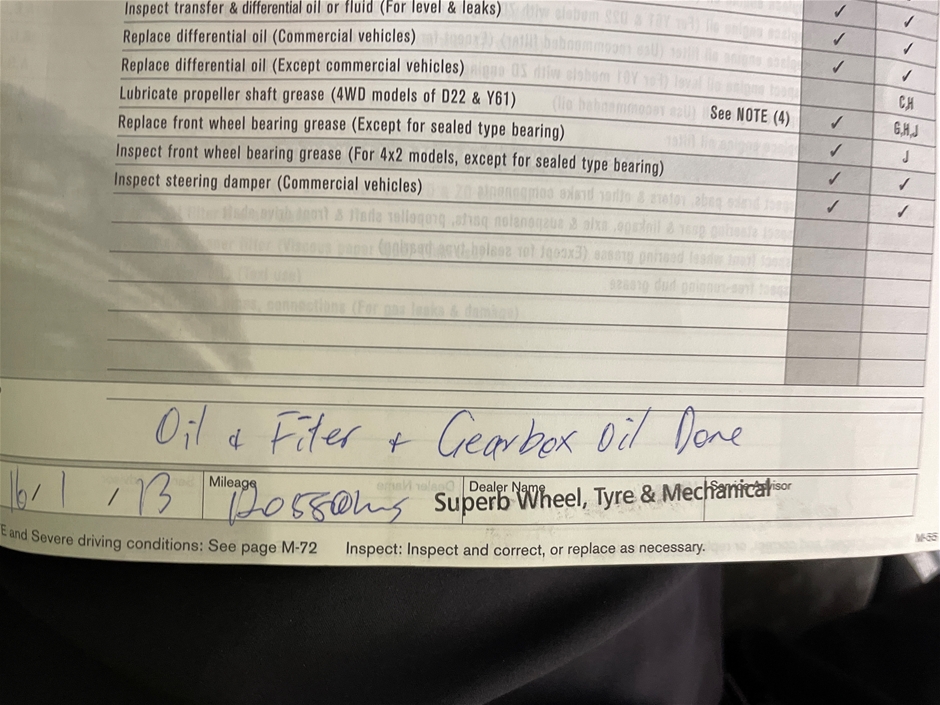 Inspect transfer & differential oil or fluid (For level & leaks) ✓ ✓
Replace differential oil (Commercial vehicles) ✓ ✓
Replace differential oil (Except commercial vehicles) ✓ ✓
Lubricate propeller shaft grease (4WD models of D22 & Y61) See NOTE (4) C,H
Replace front wheel bearing grease (Except for sealed type bearing) ✓ G,H,J
Inspect front wheel bearing grease (For 4x2 models, except for sealed type bearing) ✓ J
Inspect steering damper (Commercial vehicles) ✓ ✓
✓ ✓
Oil & Filer + Gearbox oil Done
16/1/13 Mileage Dealer Name Superb Wheel, Tyre & Mechanical Service Advisor
E and Severe driving conditions: See page M-72 Inspect: Inspect and correct, or replace as necessary. M-55